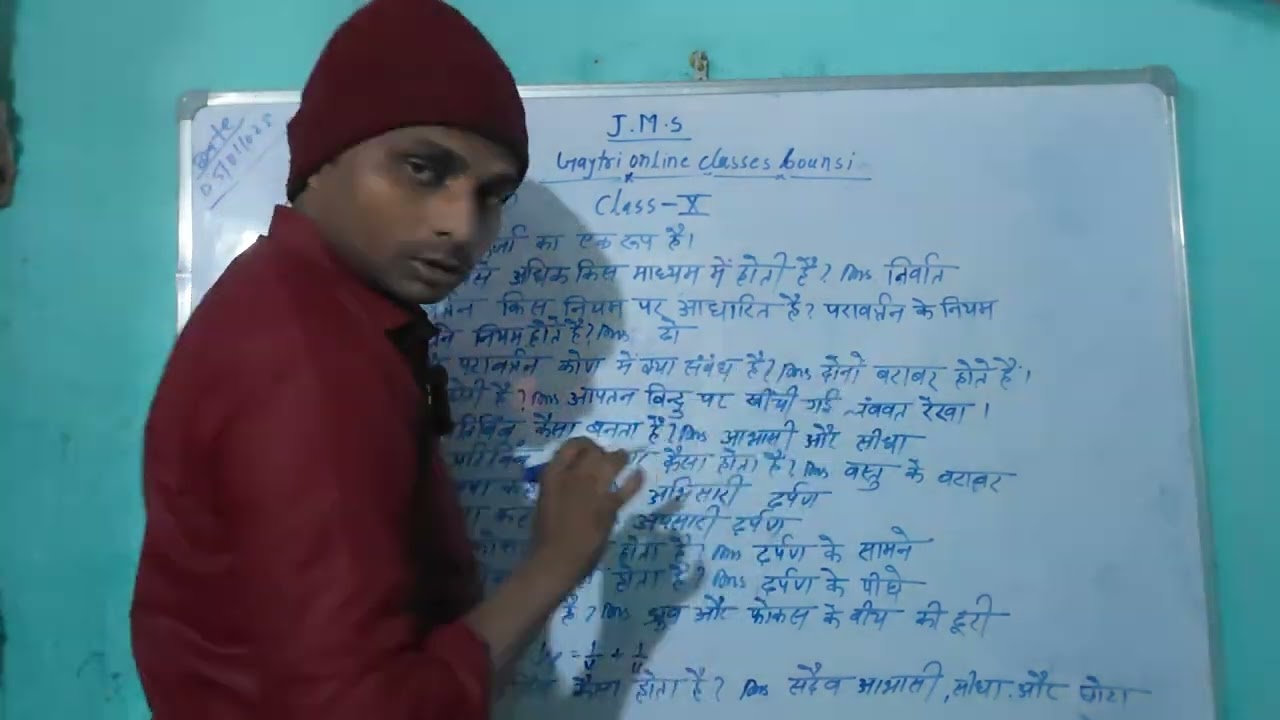 Date
05/01/025
J.M.S
Gaytri online classes bounsi
Class-X
का एक रूप है।
से अधिक किस माध्यम में होती है? Ans निर्वात
किस नियम पर आधारित है? परावर्तन के नियम
नियम होते है? Ans दो
परावर्तन कोण में क्या संबंध है? Ans दोनो बराबर होते है।
है? Ans आपतन बिन्दु पर खींची गई लंबवत रेखा।
कैसा बनता है? Ans आभासी और सीधा
कैसा होता है? Ans वस्तु के बराबर
अभिसारी दर्पण
अपसारी दर्पण
होता है? Ans दर्पण के सामने
होता है? Ans दर्पण के पीछे
है? Ans ध्रुव और फोकस के बीच की दूरी
= 1/v + 1/u
होता है? Ans सदैव आभासी, सीधा और छोटा